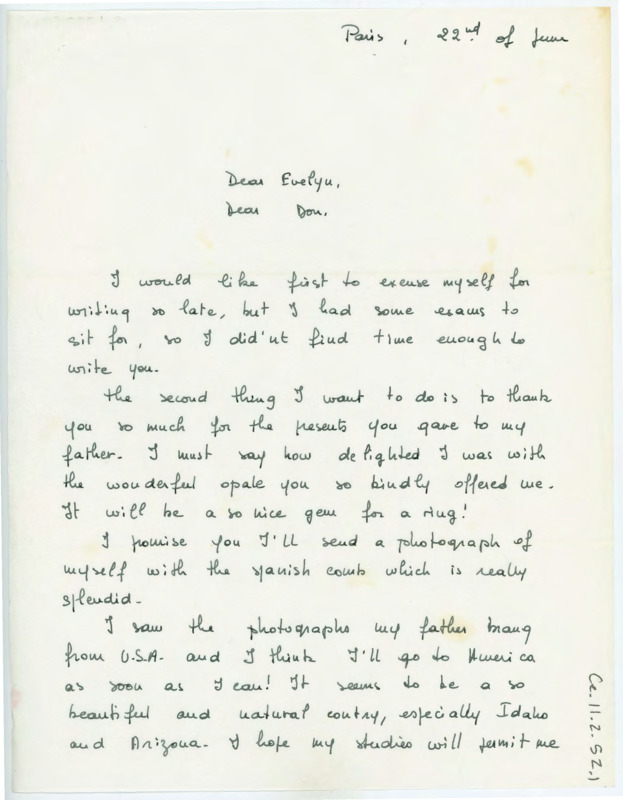 Paris, 22nd of June
Dear Evelyn,
Dear Don,
I would like first to excuse myself for
writing so late, but I had some exams to
sit for, so I did'nt find time enough to
write you.
the second thing I want to do is to thank
you so much for the presents you gave to my
father. I must say how delighted I was with
the wonderful opale you so kindly offered me.
It will be a so nice gem for a ring!
I promise you I'll send a photograph of
myself with the spanish comb which is really
splendid.
I saw the photographs my father brang
from U.S.A. and I think I'll go to America
as soon as I can! It seems to be a so
beautiful and natural contry, especially Idaho
and Arizona. I hope my studies will permit me
Ce.11.2.52.1